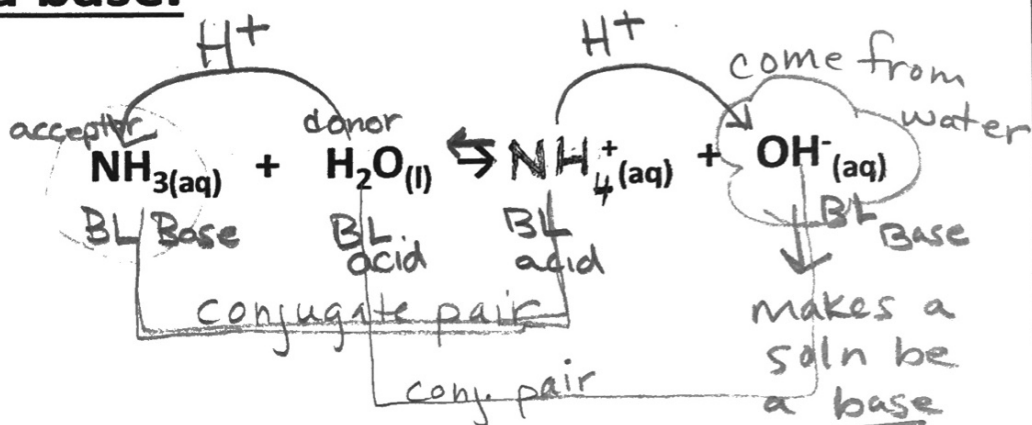 a base.
H+ H+
come from
water
acceptor donor
NH3(aq) + H2O(l) ⇆ NH4+(aq) + OH-(aq)
BL Base BL acid BL acid BL Base
conjugate pair
conj. pair
makes a
soln be
a base